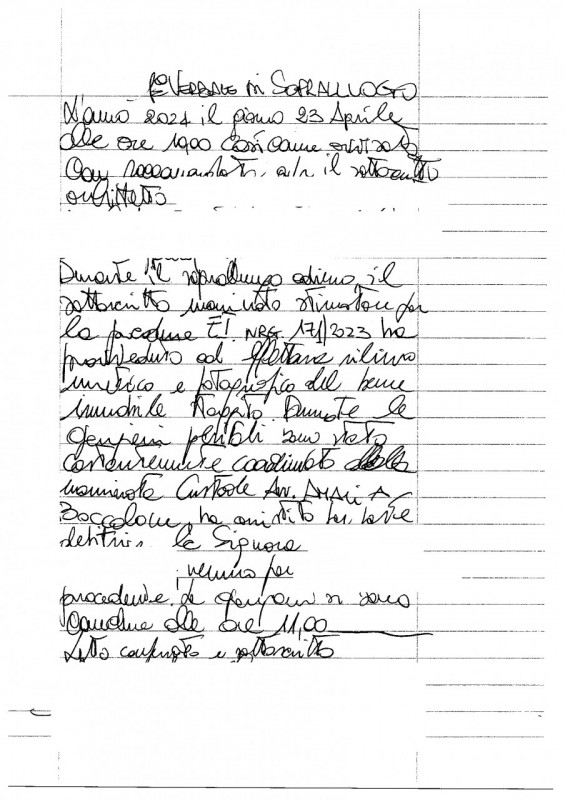 1° VERBALE DI SOPRALLUOGO
L'anno 2024 il giorno 23 Aprile
alle ore 10,00 così come
con raccomandata a/r il sottoscritto
architetto
Durante il sopralluogo odierno il
sottoscritto nominato stimatore per
la procedura E.I. NRG. 171/2023 ha
provveduto ad effettuare rilievo
metrico e fotografico del bene
immobile staggito. Durante le
operazioni peritali sono stato
coadiuvato dalla
nominata Custode Avv. AMALIA
Boccaloni, ha assistito
la Signora
per
procedente, le operazioni si sono
concluse alle ore 11,00
Letto confermato e sottoscritto